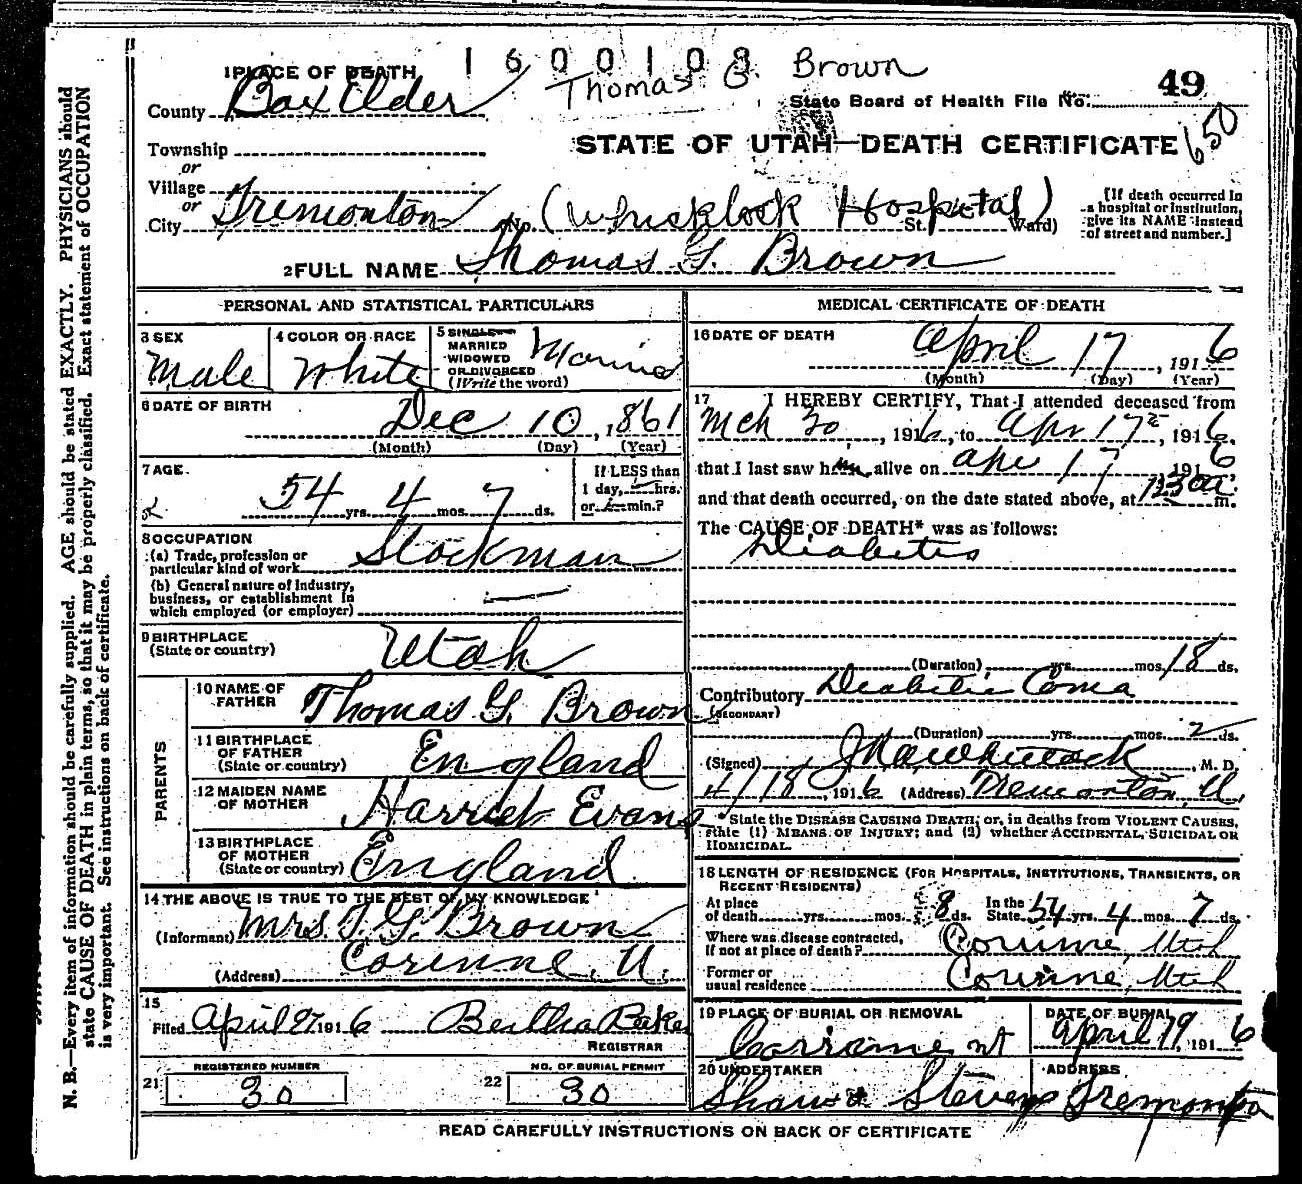 1600108
Thomas G. Brown
1 PLACE OF DEATH
49
County Box Elder
State Board of Health File No.
650
Township
STATE OF UTAH—DEATH CERTIFICATE
or
Village
or
City Tremonton No. ( Hospital St. Ward)
[If death occurred in
a hospital or institution,
give its NAME instead
of street and number.]
2 FULL NAME Thomas G. Brown
PERSONAL AND STATISTICAL PARTICULARS
3 SEX
Male
4 COLOR OR RACE
White
5 SINGLE
MARRIED
WIDOWED
OR DIVORCED
(Write the word)
Married
6 DATE OF BIRTH
Dec 10, 1861
(Month) (Day) (Year)
7 AGE
54 yrs. 4 mos. 7 ds.
If LESS than
1 day, hrs.
or min.?
8 OCCUPATION
(a) Trade, profession or
particular kind of work Stockman
(b) General nature of industry,
business, or establishment in
which employed (or employer)
9 BIRTHPLACE
(State or country) Utah
PARENTS
10 NAME OF
FATHER Thomas G. Brown
11 BIRTHPLACE
OF FATHER
(State or country) England
12 MAIDEN NAME
OF MOTHER Harriet Evans
13 BIRTHPLACE
OF MOTHER
(State or country) England
14 THE ABOVE IS TRUE TO THE BEST OF MY KNOWLEDGE
(Informant) Mrs. T. G. Brown
(Address) Corinne, U.
15
Filed April 1916 Bertha
REGISTRAR
21 REGISTERED NUMBER
30
22 NO. OF BURIAL PERMIT
30
MEDICAL CERTIFICATE OF DEATH
16 DATE OF DEATH
April 17, 1916
(Month) (Day) (Year)
17 I HEREBY CERTIFY, That I attended deceased from
Mch 30, 1916, to Apr 17, 1916,
that I last saw him alive on Apr 17, 1916,
and that death occurred, on the date stated above, at m.
The CAUSE OF DEATH* was as follows:
Diabetis
(Duration) yrs. mos. 18 ds.
Contributory Diabetic Coma
(SECONDARY)
(Duration) yrs. mos. 2 ds.
(Signed) , M. D.
4/18, 1916 (Address) Tremonton, U.
*State the DISEASE CAUSING DEATH; or, in deaths from VIOLENT CAUSES,
state (1) MEANS OF INJURY; and (2) whether ACCIDENTAL, SUICIDAL OR
HOMICIDAL.
18 LENGTH OF RESIDENCE (FOR HOSPITALS, INSTITUTIONS, TRANSIENTS, OR
RECENT RESIDENTS)
At place
of death yrs. mos. 8 ds.
In the
State 54 yrs. 4 mos. 7 ds.
Where was disease contracted,
if not at place of death? Corinne, Utah
Former or
usual residence Corinne, Utah
19 PLACE OF BURIAL OR REMOVAL
DATE OF BURIAL
April 19, 1916
20 UNDERTAKER
Stevens
ADDRESS
Tremonton
READ CAREFULLY INSTRUCTIONS ON BACK OF CERTIFICATE
N. B.—Every item of information should be carefully supplied. AGE should be stated EXACTLY. PHYSICIANS should
state CAUSE OF DEATH in plain terms, so that it may be properly classified. Exact statement of OCCUPATION
is very important. See instructions on back of certificate.